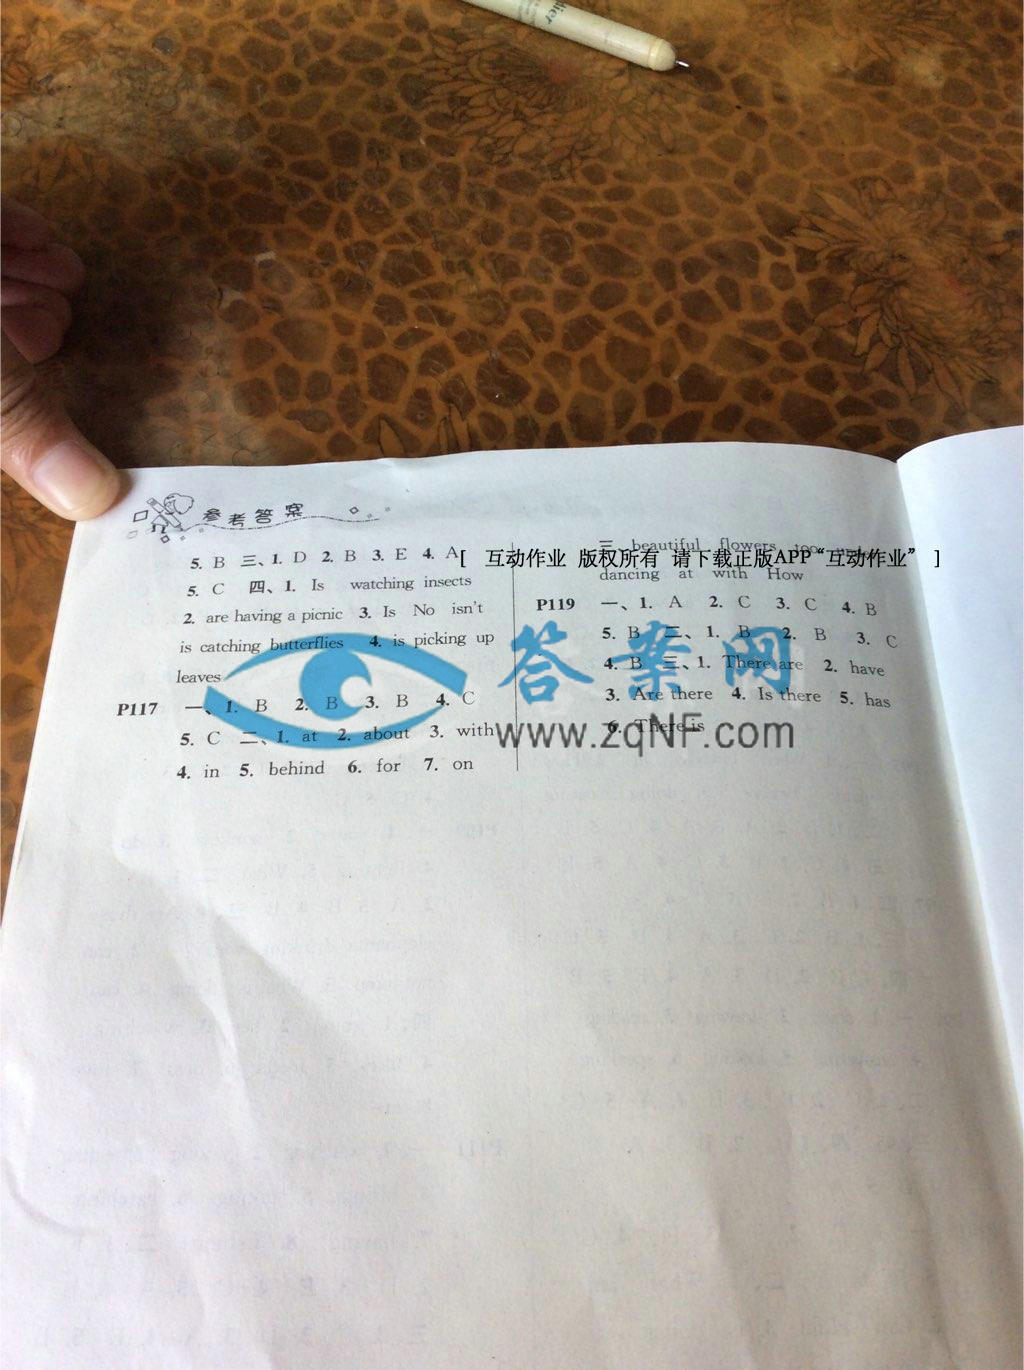 参考答案
5. B 三、1. D 2. B 3. E 4. A
5. C 四、1. Is watching insects
2. are having a picnic 3. Is No isn't
is catching butterflies 4. is picking up
leaves
P117 一、1. B 2. B 3. B 4. C
5. C 二、1. at 2. about 3. with
4. in 5. behind 6. for 7. on
三、beautiful flowers too
[ 互动作业 版权所有 请下载正版APP“互动作业” ]
dancing at with How
P119 一、1. A 2. C 3. C 4. B
5. B 二、1. B 2. B 3. C
4. B 三、1. There are 2. have
3. Are there 4. Is there 5. has
6. There is
答案网
www.zqNF.com